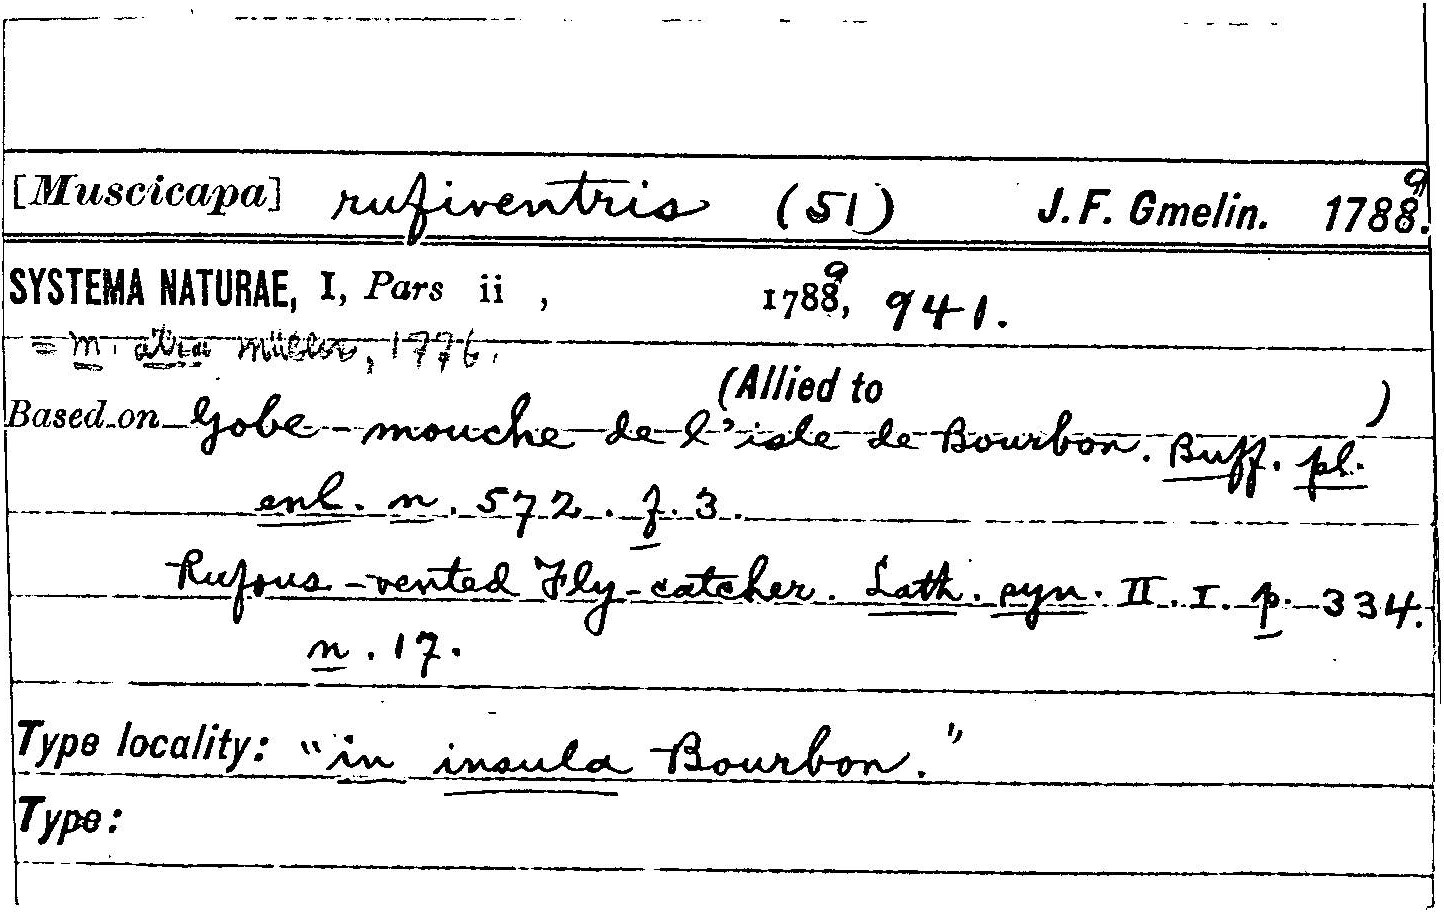 [Muscicapa] rufiventris (51) J. F. Gmelin. 17889.
SYSTEMA NATURAE, I, Pars ii , 17889, 941.
= M. atra Müller, 1776.
(Allied to )
Based on Gobe-mouche de l'isle de Bourbon. Buff. pl.
enl. n. 572. f. 3.
Rufous-vented Fly-catcher. Lath. syn. II. I. p. 334.
n. 17.
Type locality: "in insula Bourbon."
Type: